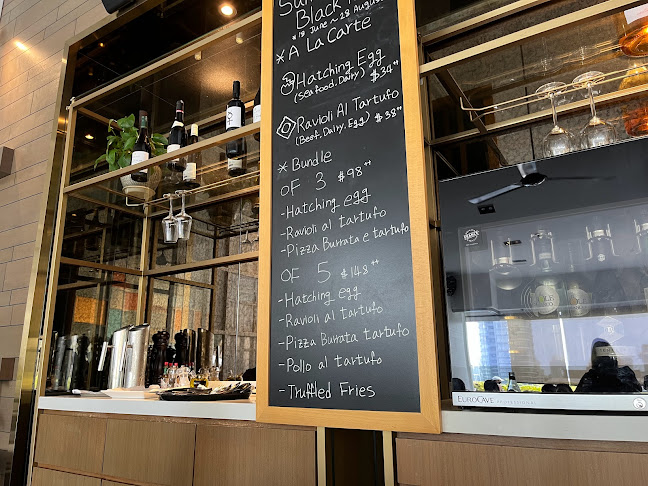 Black
* 18 June ~ 28 August
* A La Carte
Hatching Egg
(Seafood, Dairy) $34++
Ravioli Al Tartufo
(Beef, Dairy, Egg) $38++
* Bundle
OF 3 $98++
- Hatching egg
- Ravioli al tartufo
- Pizza Burrata e tartufo
OF 5 $148++
- Hatching egg
- Ravioli al tartufo
- Pizza Burrata tartufo
- Pollo al tartufo
- Truffled Fries
EUROCAVE PROFESSIONAL